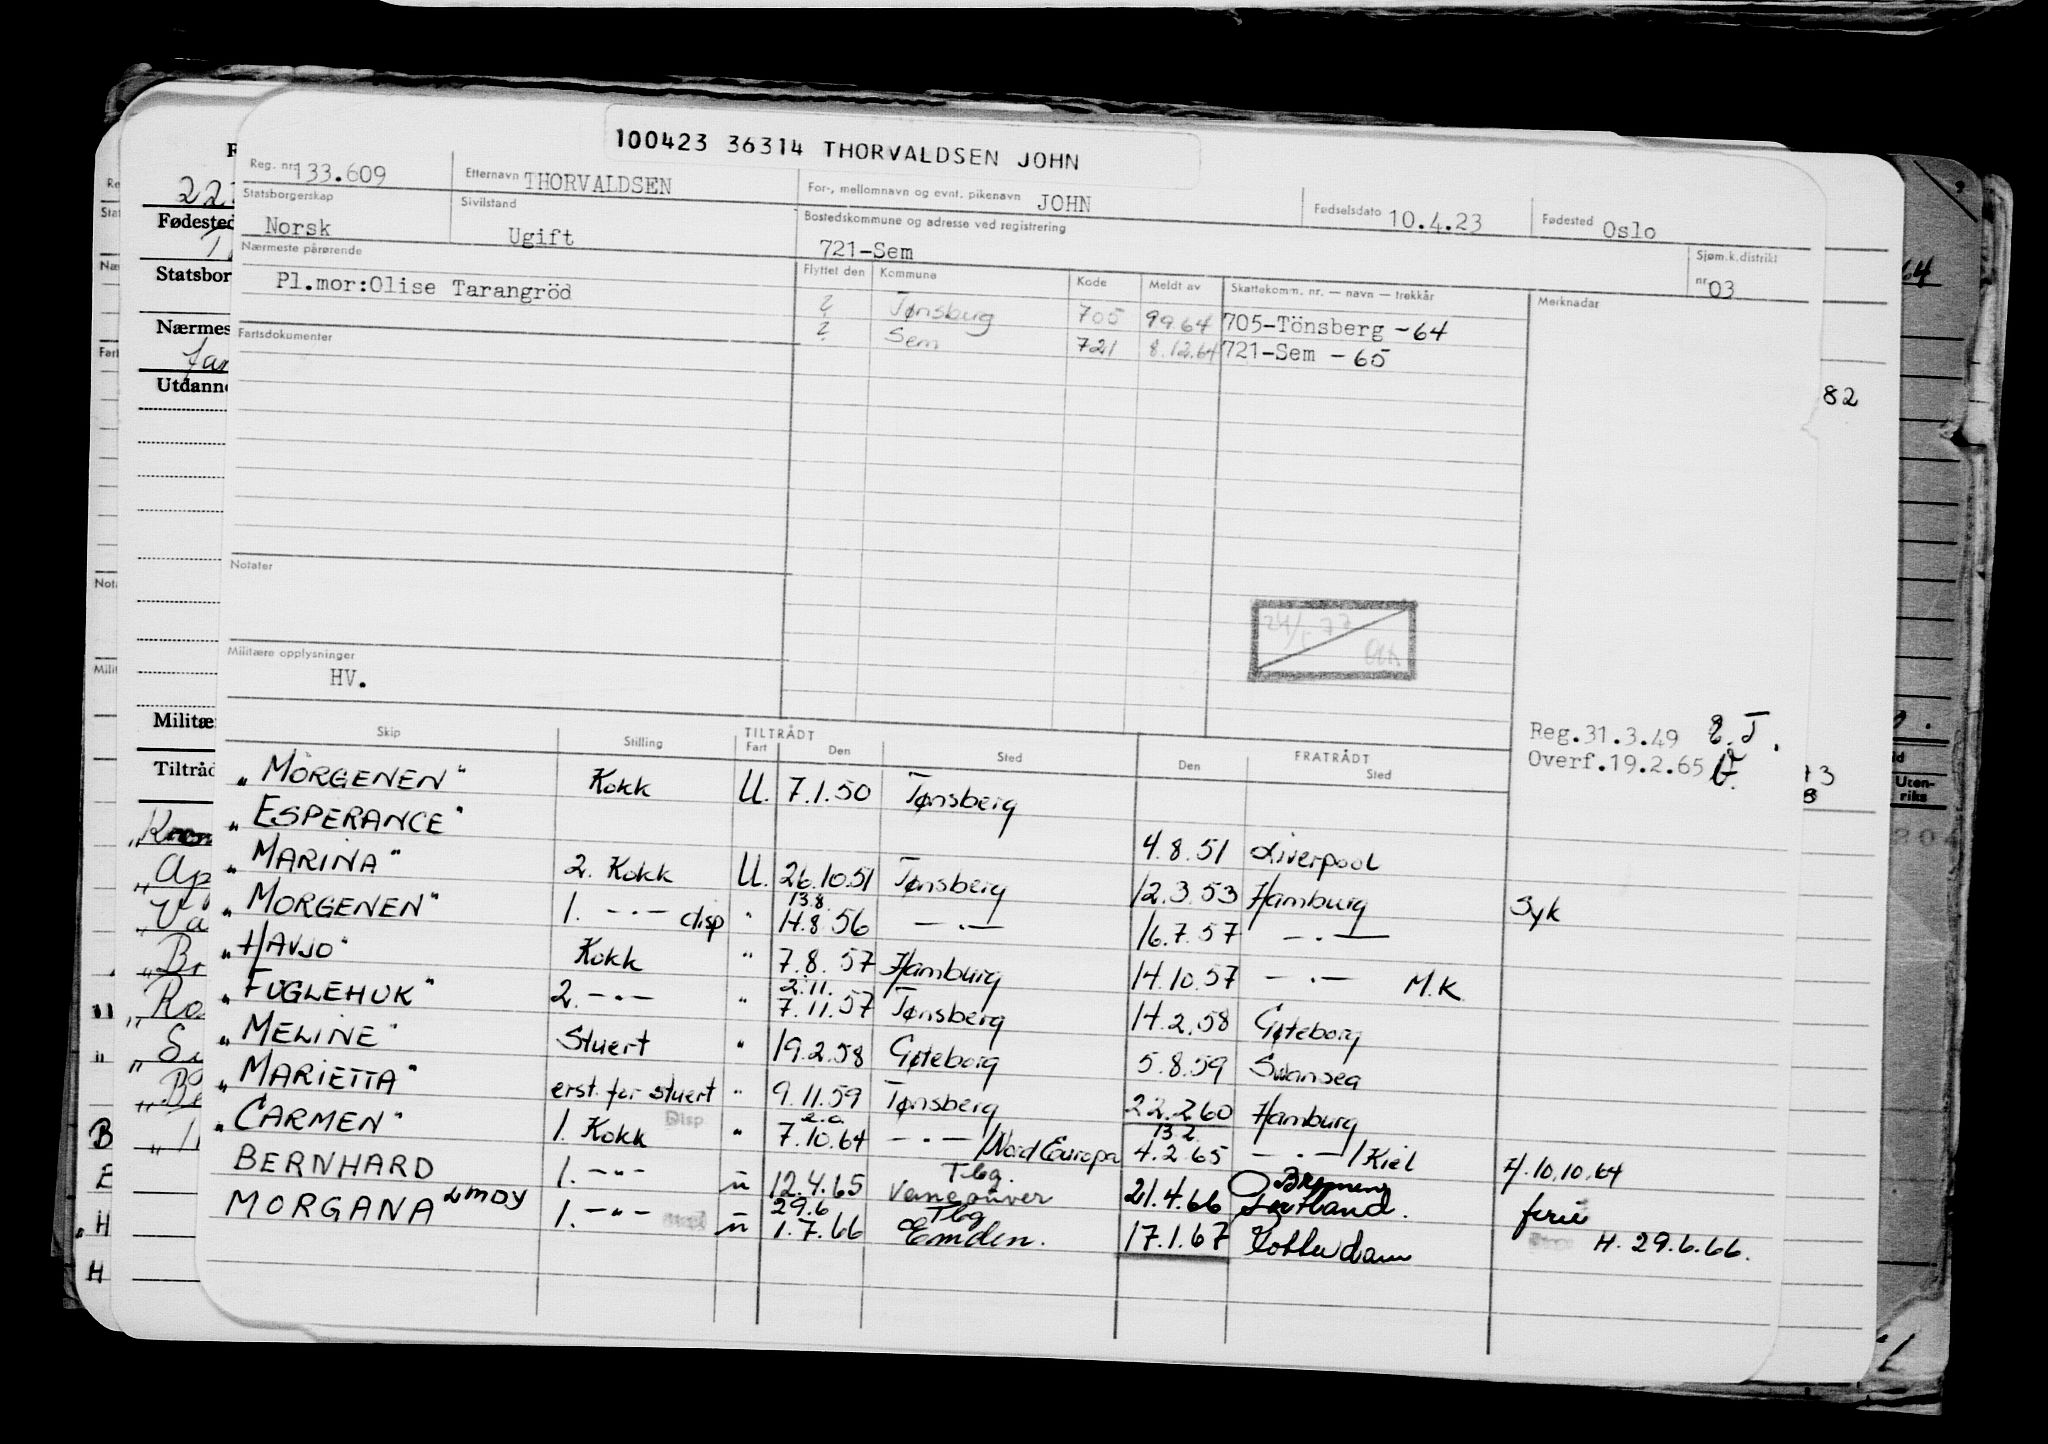 100423 36314 THORVALDSEN JOHN
Reg. nr. 133.609 Etternavn THORVALDSEN For-, mellomnavn og evnt. pikenavn JOHN Fødselsdato 10.4.23 Fødested Oslo
Statsborgerskap Norsk Sivilstand Ugift Bostedskommune og adresse ved registrering 721-Sem Sjøm.k.distrikt nr 03
Nærmeste pårørende Pl.mor:Olise Tarangröd
Flyttet den Kommune Kode Meldt av Skattekomm. nr. — navn — trekkår Merknader
? Tønsberg 705 9.9.64 705-Tönsberg -64
? Sem 721 8.12.64 721-Sem - 65
Fartsdokumenter
Notater
24/5 77
Militære opplysninger
HV.
Reg.31.3.49
Overf.19.2.65
Skip Stilling TILTRÅDT Fart Den Sted FRATRÅDT Den Sted
"MORGENEN" Kokk U. 7.1.50 Tønsberg
"ESPERANCE" 4.8.51 Liverpool
"MARINA" 2. Kokk U. 26.10.51 Tønsberg 12.3.53 Hamburg Syk
"MORGENEN" 1. -"- disp " 13.8. 14.8.56 -"- 16.7.57 -"-
"HAVJO" Kokk " 7.8.57 Hamburg 14.10.57 -"- M.K.
"FUGLEHUK" 2. -"- " 2.11. 7.11.57 Tønsberg 14.2.58 Gøteborg
"MELINE" Stuert " 19.2.58 Gøteborg 5.8.59 Swansea
"MARIETTA" erst. for stuert " 9.11.59 Tønsberg 22.2.60 Hamburg
"CARMEN" 1. Kokk Disp " e.o. 7.10.64 -"- /Nord Europa 13.2. 4.2.65 -"- /Kiel H. 10.10.64
BERNHARD 1. -"- u 12.4.65 Tbg. Vancouver 21.4.66 ferie
MORGANA LMDY 1. -"- u 29.6 1.7.66 Tbg Emden. 17.1.67 Rotterdam H. 29.6.66.
Fødested
Statsbor
Nærmes
Utdanne
Militæ
Tiltråd
82
Uten-
riks